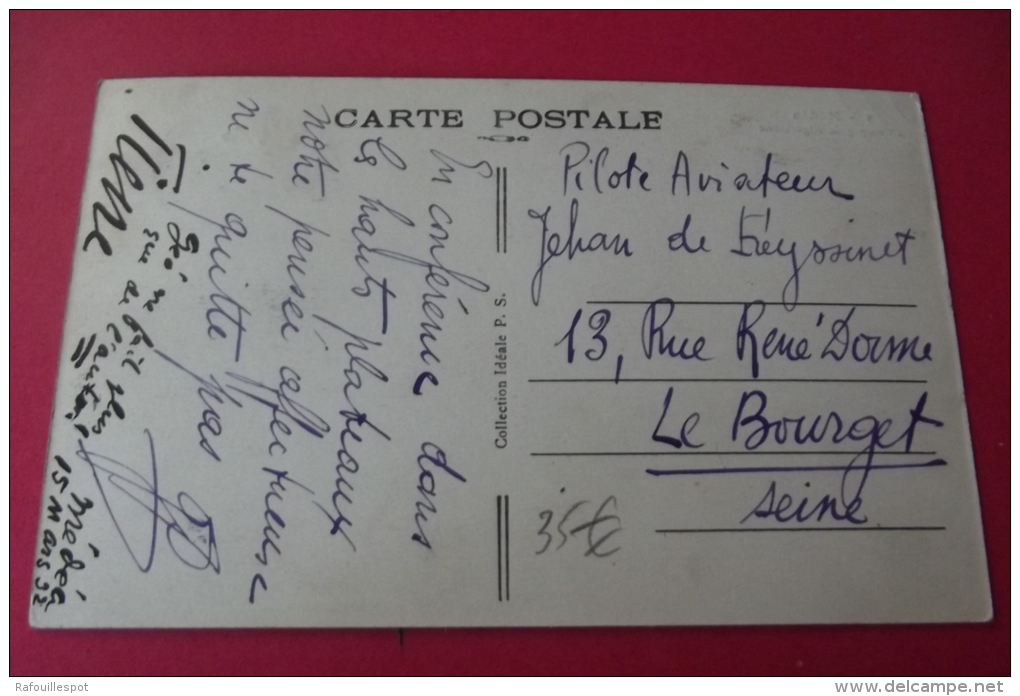 CARTE POSTALE
En conférence dans
les hauts plateaux
notre pensée affectueuse
ne te quitte pas
Médéa
15 Mars 32
Collection Idéale P. S.
Pilote Aviateur
Jehan de Freyssinet
13, Rue René Dorme
Le Bourget
Seine
35€
Rafouillespot
delcampe.net